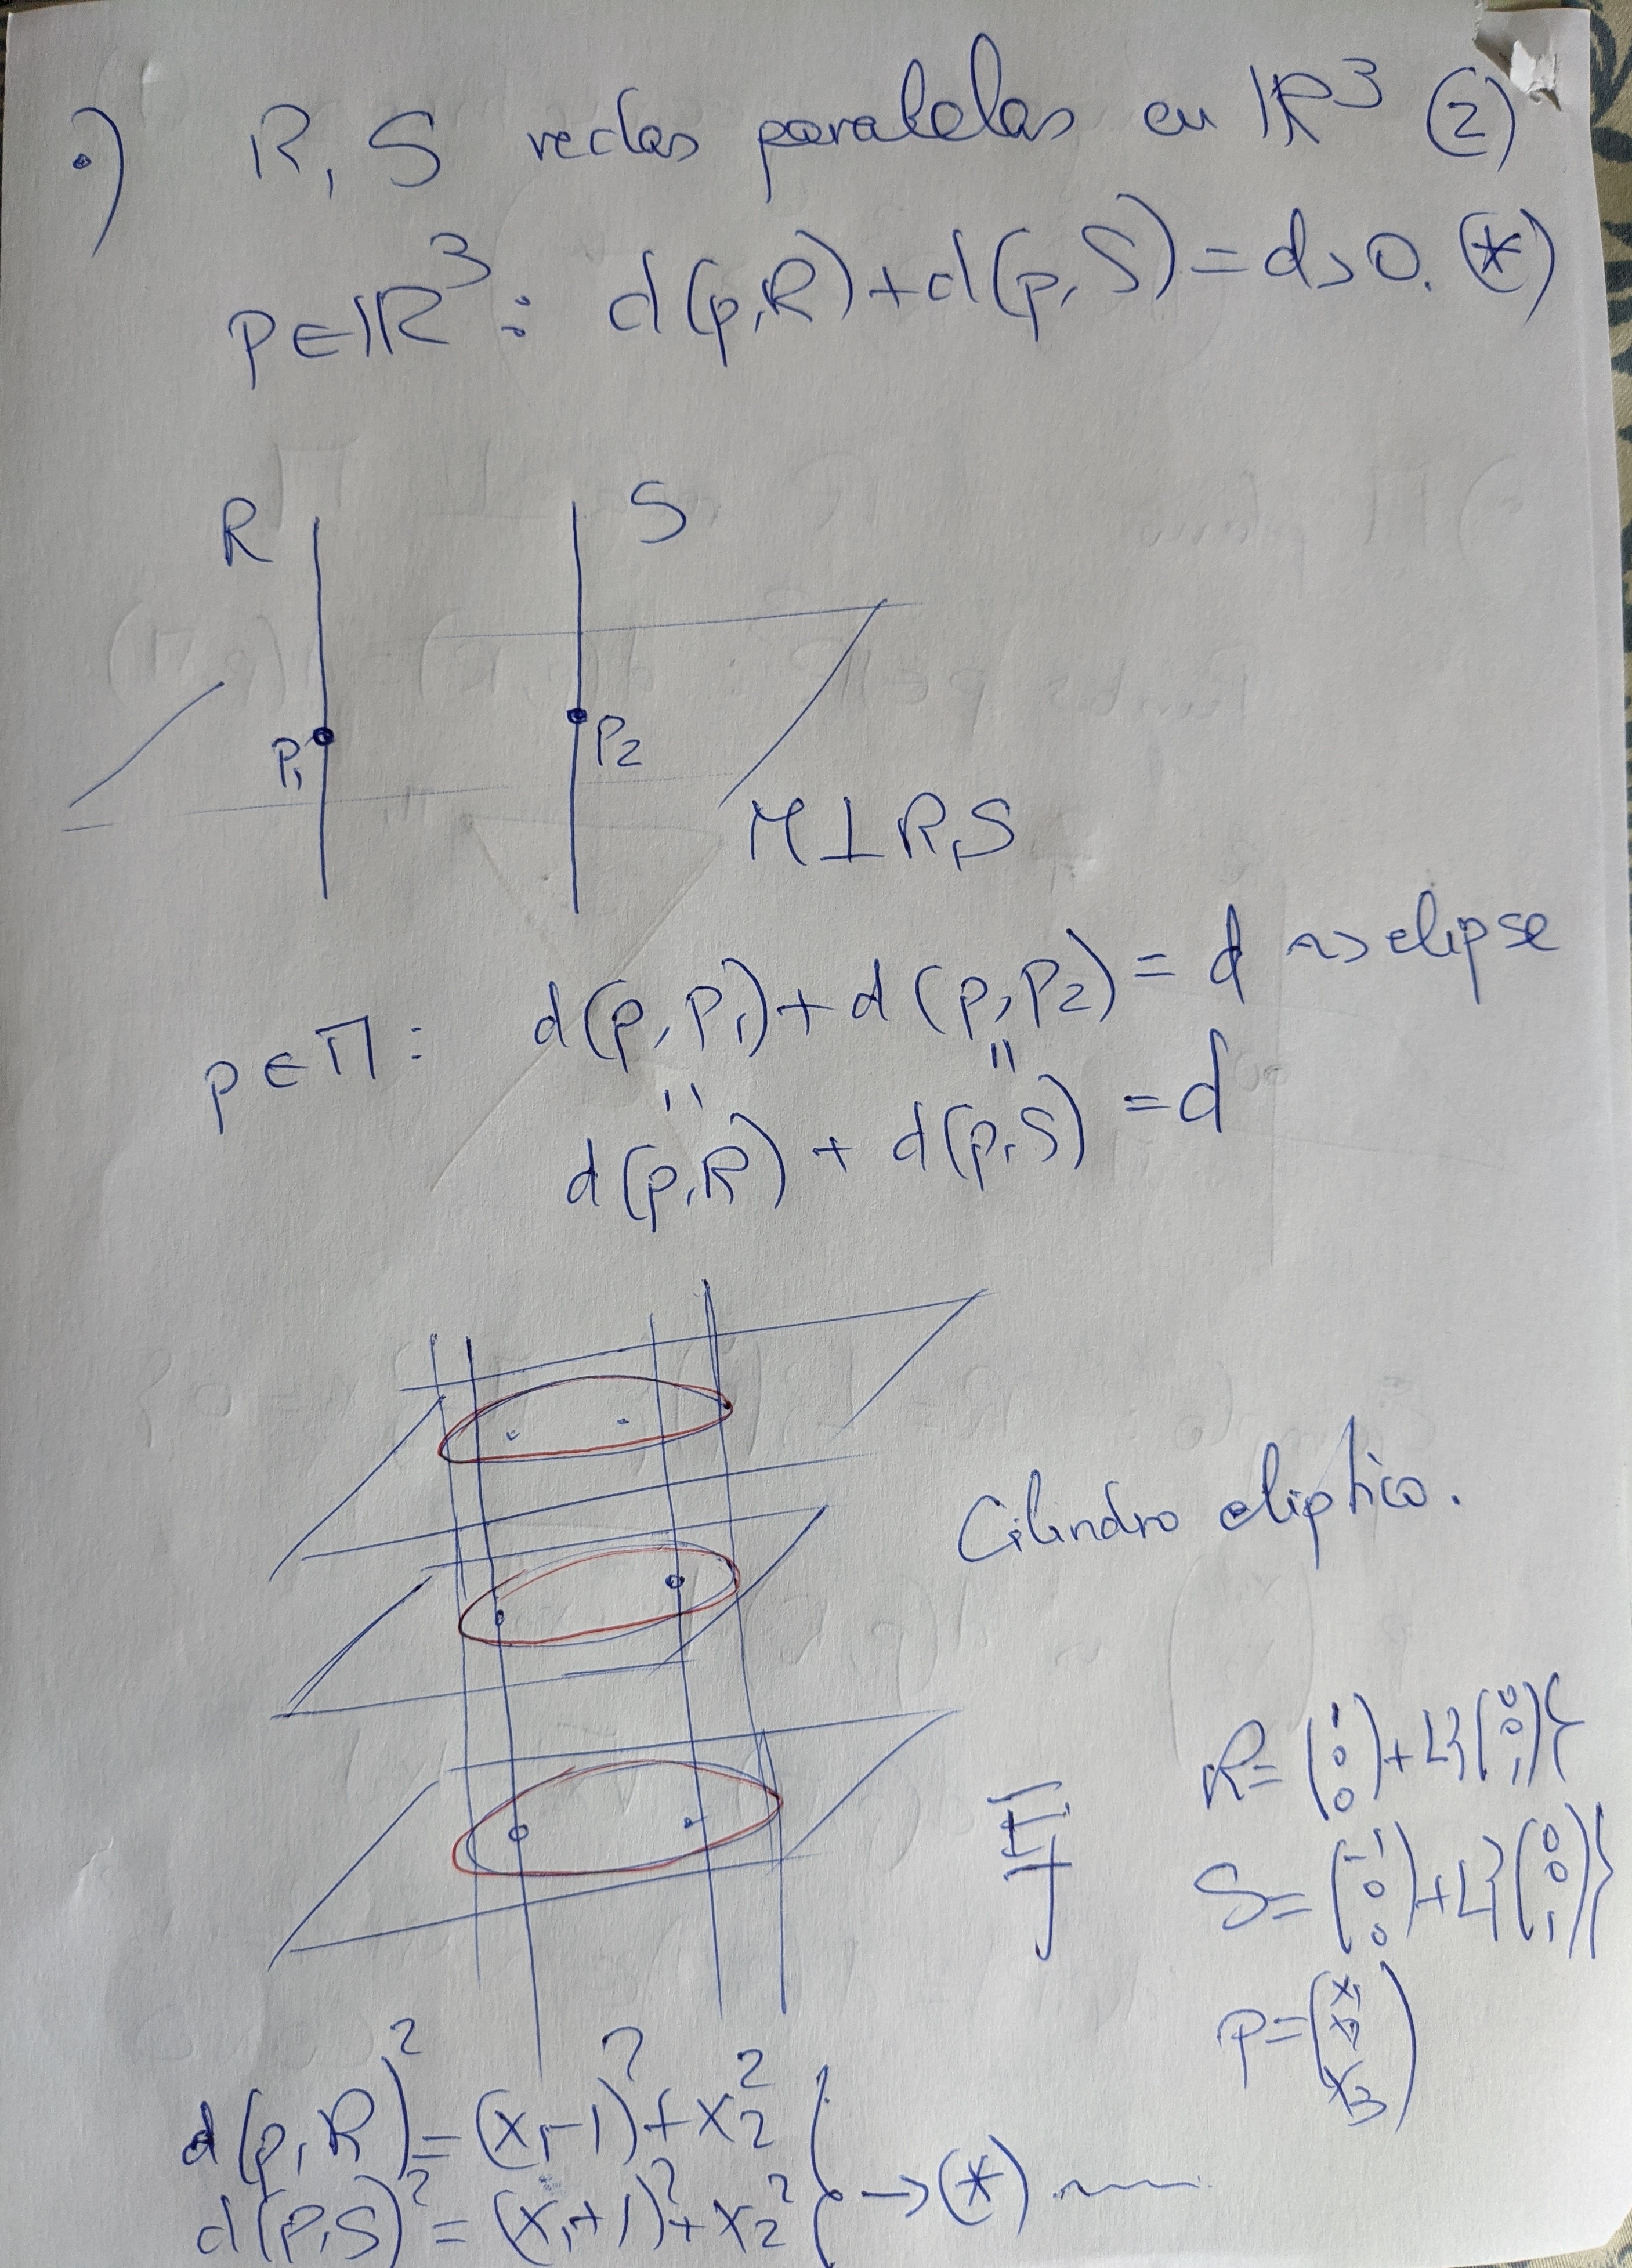 •) R, S rectas paralelas en ℝ³ (2)
p∈ℝ³: d(p,R)+d(p,S)=d>0. (*)
R S
P₁ P₂
Π⊥R,S
p∈Π: d(p,P₁)+d(p,P₂)=d ⇝ elipse
" "
d(p,R)+d(p,S)=d
Cilindro elíptico.
R=(1 0 0)+L{(0 0 1)}
S=(-1 0 0)+L{(0 0 1)}
p=(x₁ x₂ x₃)
d(p,R)²=(x₁-1)²+x₂²
d(p,S)²=(x₁+1)²+x₂² } →(*)